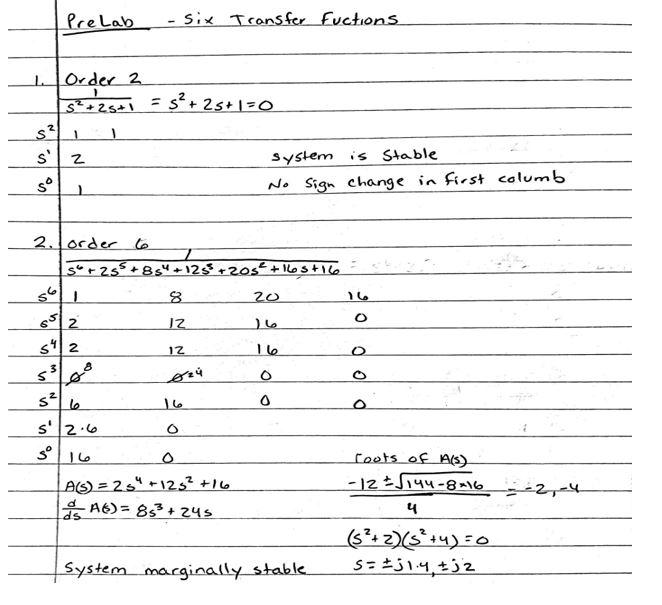 PreLab - Six Transfer Fuctions
1. Order 2
1
s²+2s+1 = s²+2s+1=0
s² 1 1
s¹ 2 system is Stable
s⁰ 1 No Sign change in first columb
2. order 6
1
s⁶+2s⁵+8s⁴+12s³+20s²+16s+16 =
s⁶ 1 8 20 16
s⁵ 2 12 16 0
s⁴ 2 12 16 0
s³ 0 8 0 24 0 0
s² 6 16 0 0
s¹ 2.6 0
s⁰ 16 0 roots of A(s)
A(s) = 2s⁴+12s²+16 -12±√144-8×16 = -2,-4
d/ds A(s) = 8s³+24s 4
(s²+2)(s²+4)=0
System marginally stable s=±j1.4,±j2